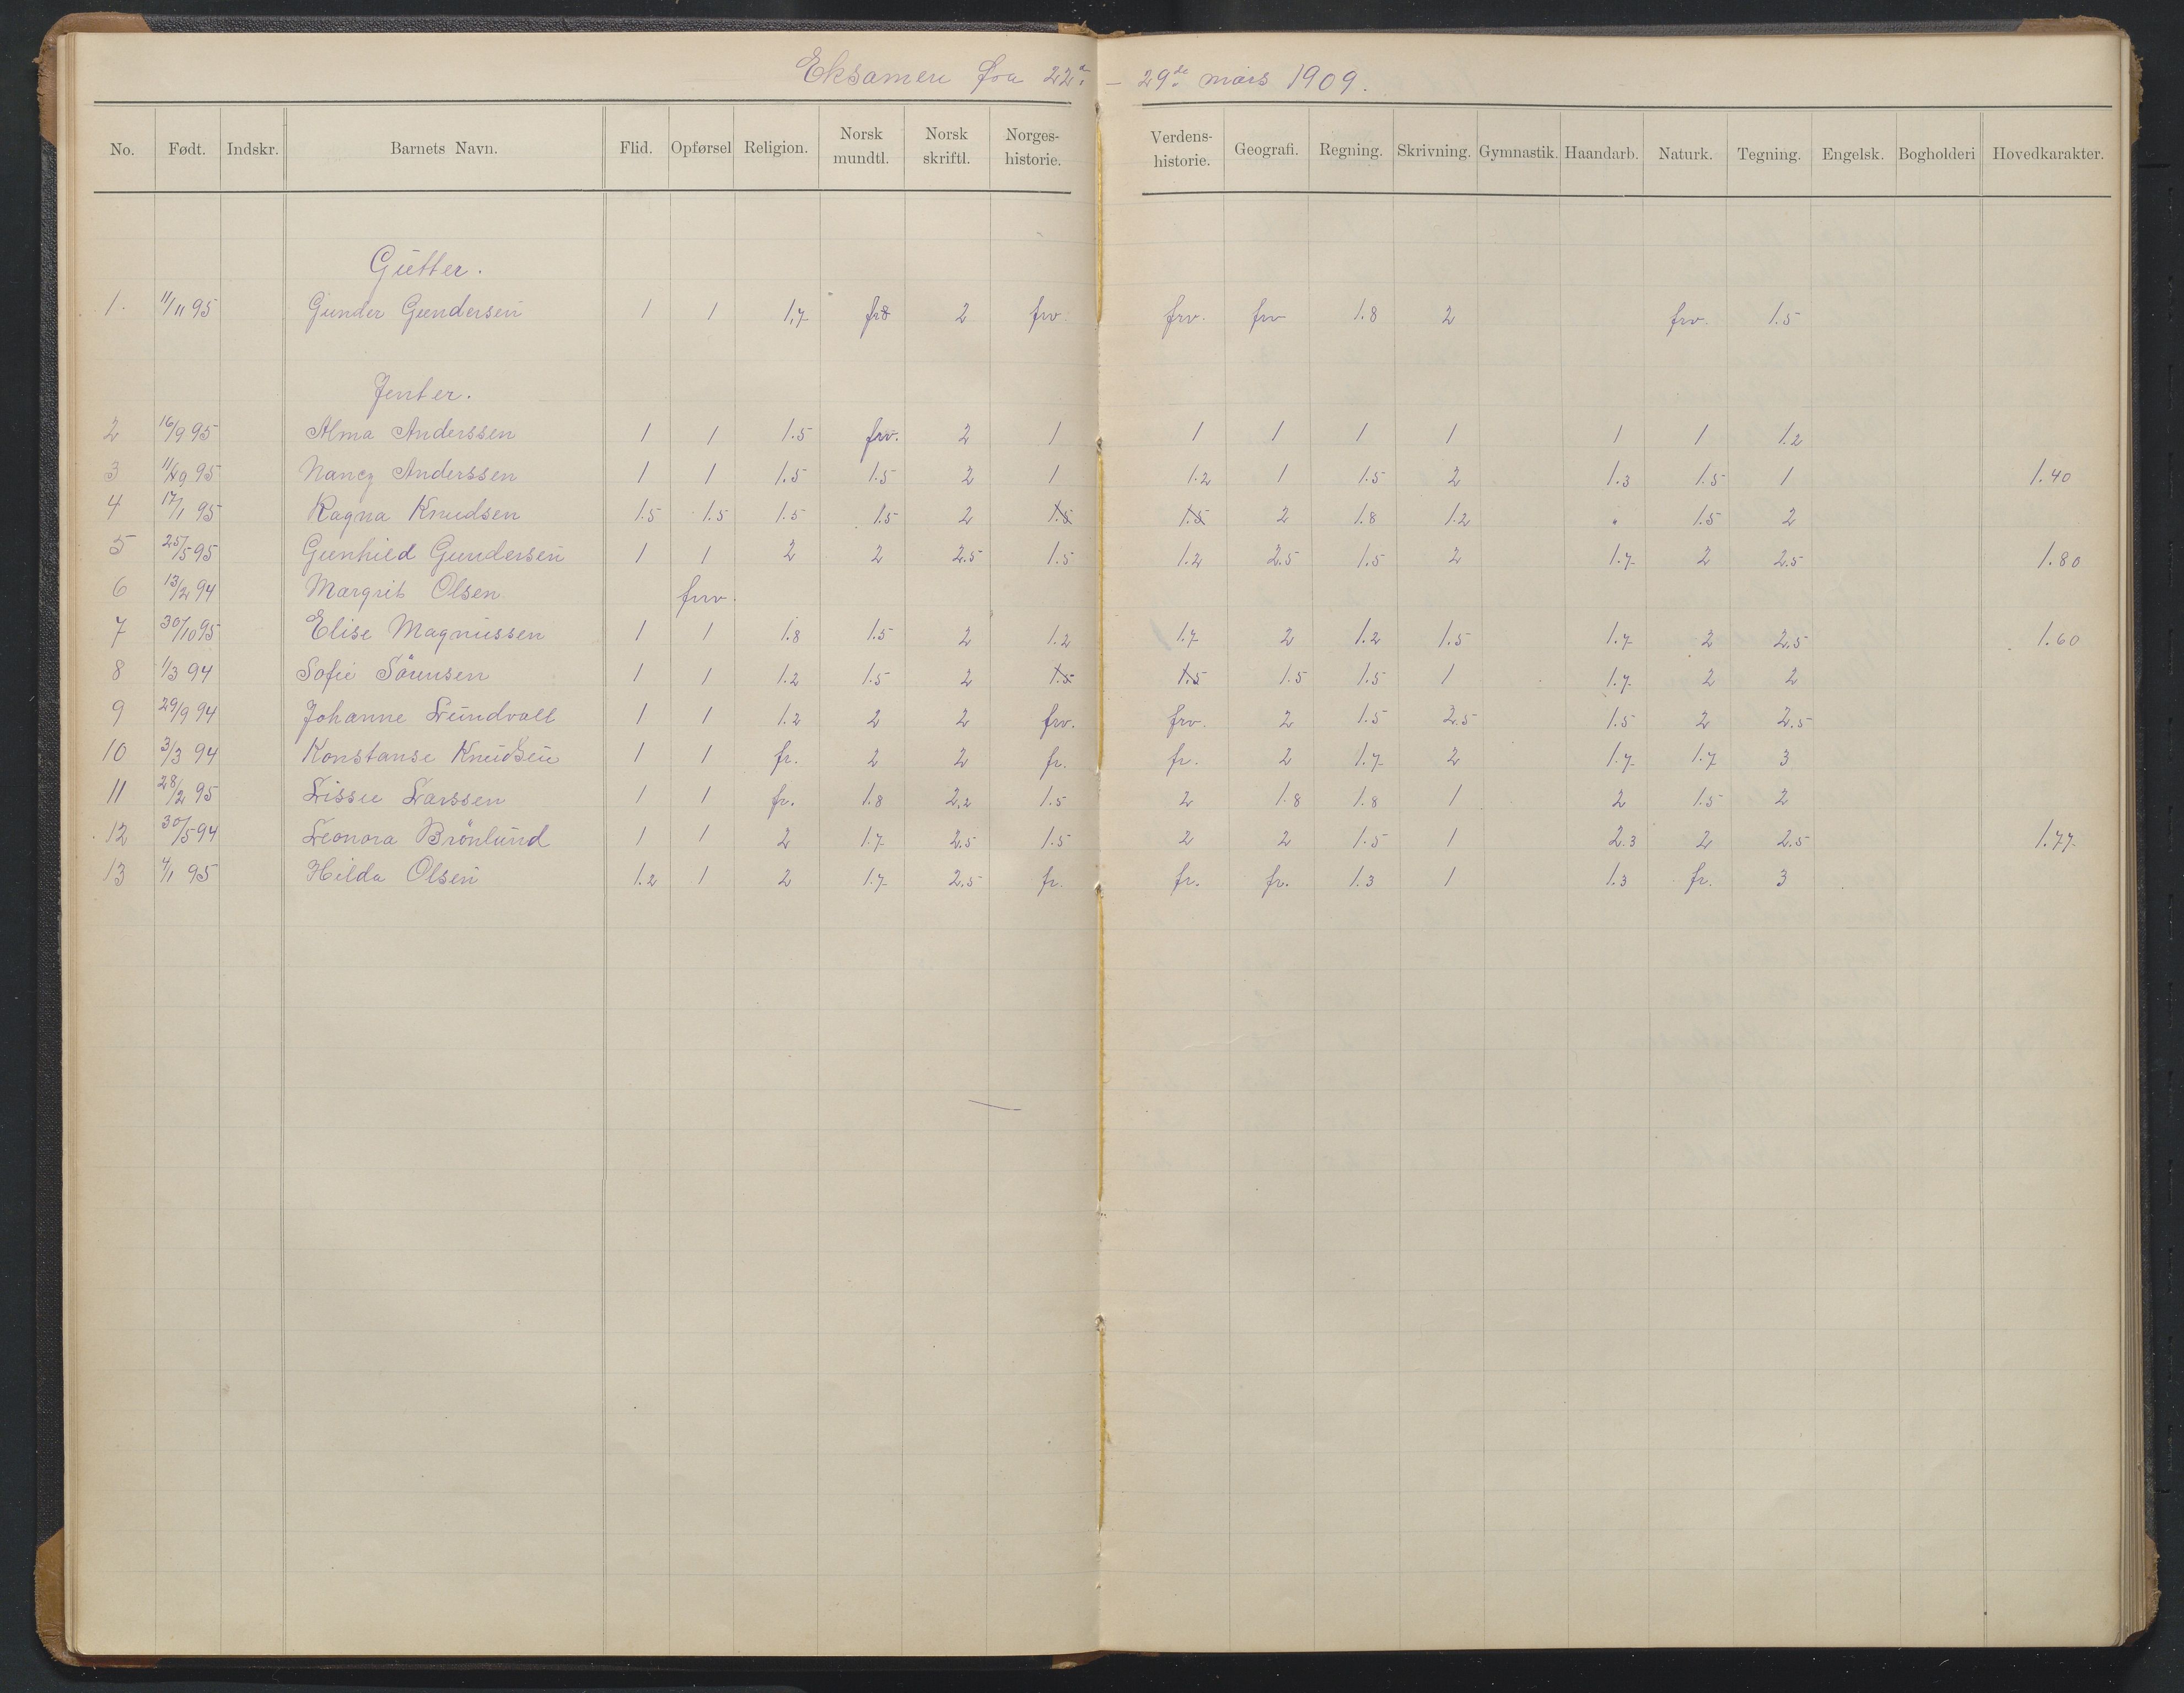 Eksamen fra 22de – 29de mars 1909.
No. Født. Indskr. Barnets Navn. Flid. Opførsel Religion. Norsk mundtl. Norsk skriftl. Norges-historie. Verdens-historie. Geografi. Regning. Skrivning. Gymnastik. Haandarb. Naturk. Tegning. Engelsk. Bogholderi Hovedkarakter.
Gutter.
1. 11/11 95 Gunder Gundersen 1 1 1,7 2 frv. frv. frv 1.8 2 frv. 1.5
Jenter.
2 16/9 95 Alma Anderssen 1 1 1.5 frv. 2 1 1 1 1 1 1 1 1.2
3 11/9 95 Nancy Anderssen 1 1 1.5 1.5 2 1 1.2 1 1.5 2 1.3 1.5 1 1.40
4 17/1 95 Ragna Knudsen 1.5 1.5 1.5 1.5 2 1.5 1.5 2 1.8 1.2 1.5 2
5 25/5 95 Gunhild Gundersen 1 1 2 2 2.5 1.5 1.2 2.5 1.5 2 1.7 2 2.5 1.80
6 13/2 94 Margrit Olsen frv.
7 30/10 95 Elise Magnussen 1 1 1.8 1.5 2 1.2 1.7 2 1.2 1.5 1.7 2 2.5 1.60
8 1/3 94 Sofie Sörensen 1 1 1.2 1.5 2 1.5 1.5 1.5 1.5 1 1.7 2 2
9 29/9 94 Johanne Lundvall 1 1 1.2 2 2 frv. frv. 2 1.5 2.5 1.5 2 2.5
10 3/3 94 Konstanse Knudsen 1 1 fr. 2 2 fr. fr. 2 1.7 2 1.7 1.7 3
11 28/2 95 Lissie Larssen 1 1 fr. 1.8 2.2 1.5 2 1.8 1.8 1 2 1.5 2
12 30/5 94 Leonora Brönlund 1 1 2 1.7 2.5 1.5 2 2 1.5 1 2.3 2 2.5 1.77
13 4/1 95 Hilda Olsen 1.2 1 2 1.7 2.5 fr. fr. fr. 1.3 1 1.3 fr. 3